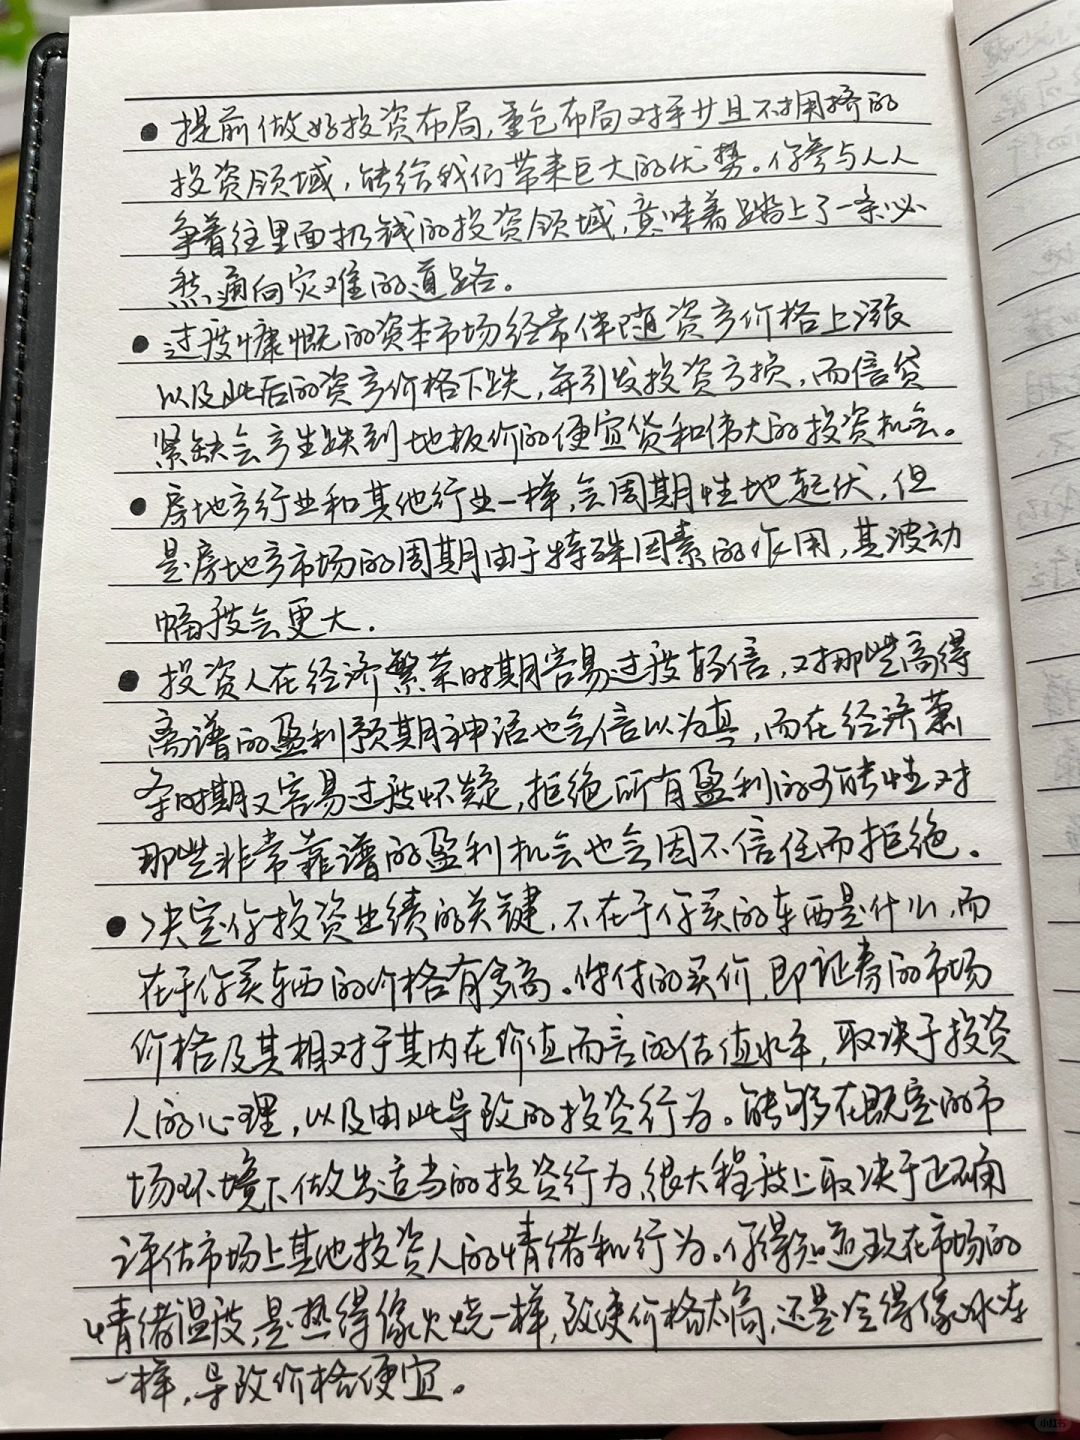 ● 提前做好投资布局,重仓布局对手少且不拥挤的
投资领域,能给我们带来巨大的优势。你参与人人
争着往里面扔钱的投资领域,意味着踏上了一条必
然通向灾难的道路。
● 过度慷慨的资本市场经常伴随资产价格上涨
以及此后的资产价格下跌,并引发投资亏损,而信贷
紧缺会产生跌到地板价的便宜货和伟大的投资机会。
● 房地产行业和其他行业一样,会周期性地起伏,但
是房地产市场的周期由于特殊因素的作用,其波动
幅度会更大.
● 投资人在经济繁荣时期容易过度轻信,对那些高得
离谱的盈利预期神话也会信以为真,而在经济萧
条时期又容易过度怀疑,拒绝所有盈利的可能性对
那些非常靠谱的盈利机会也会因不信任而拒绝。
● 决定你投资业绩的关键,不在于你买的东西是什么,而
在于你买东西的价格有多高。你付的买价,即证券的市场
价格及其相对于其内在价值而言的估值水平,取决于投资
人的心理,以及由此导致的投资行为。能够在既定的市
场环境下做出适当的投资行为,很大程度上取决于正确
评估市场上其他投资人的情绪和行为。你得知道现在市场的
情绪温度,是热得像火烧一样,致使价格太高,还是冷得像冰冻
一样,导致价格便宜。
小红书